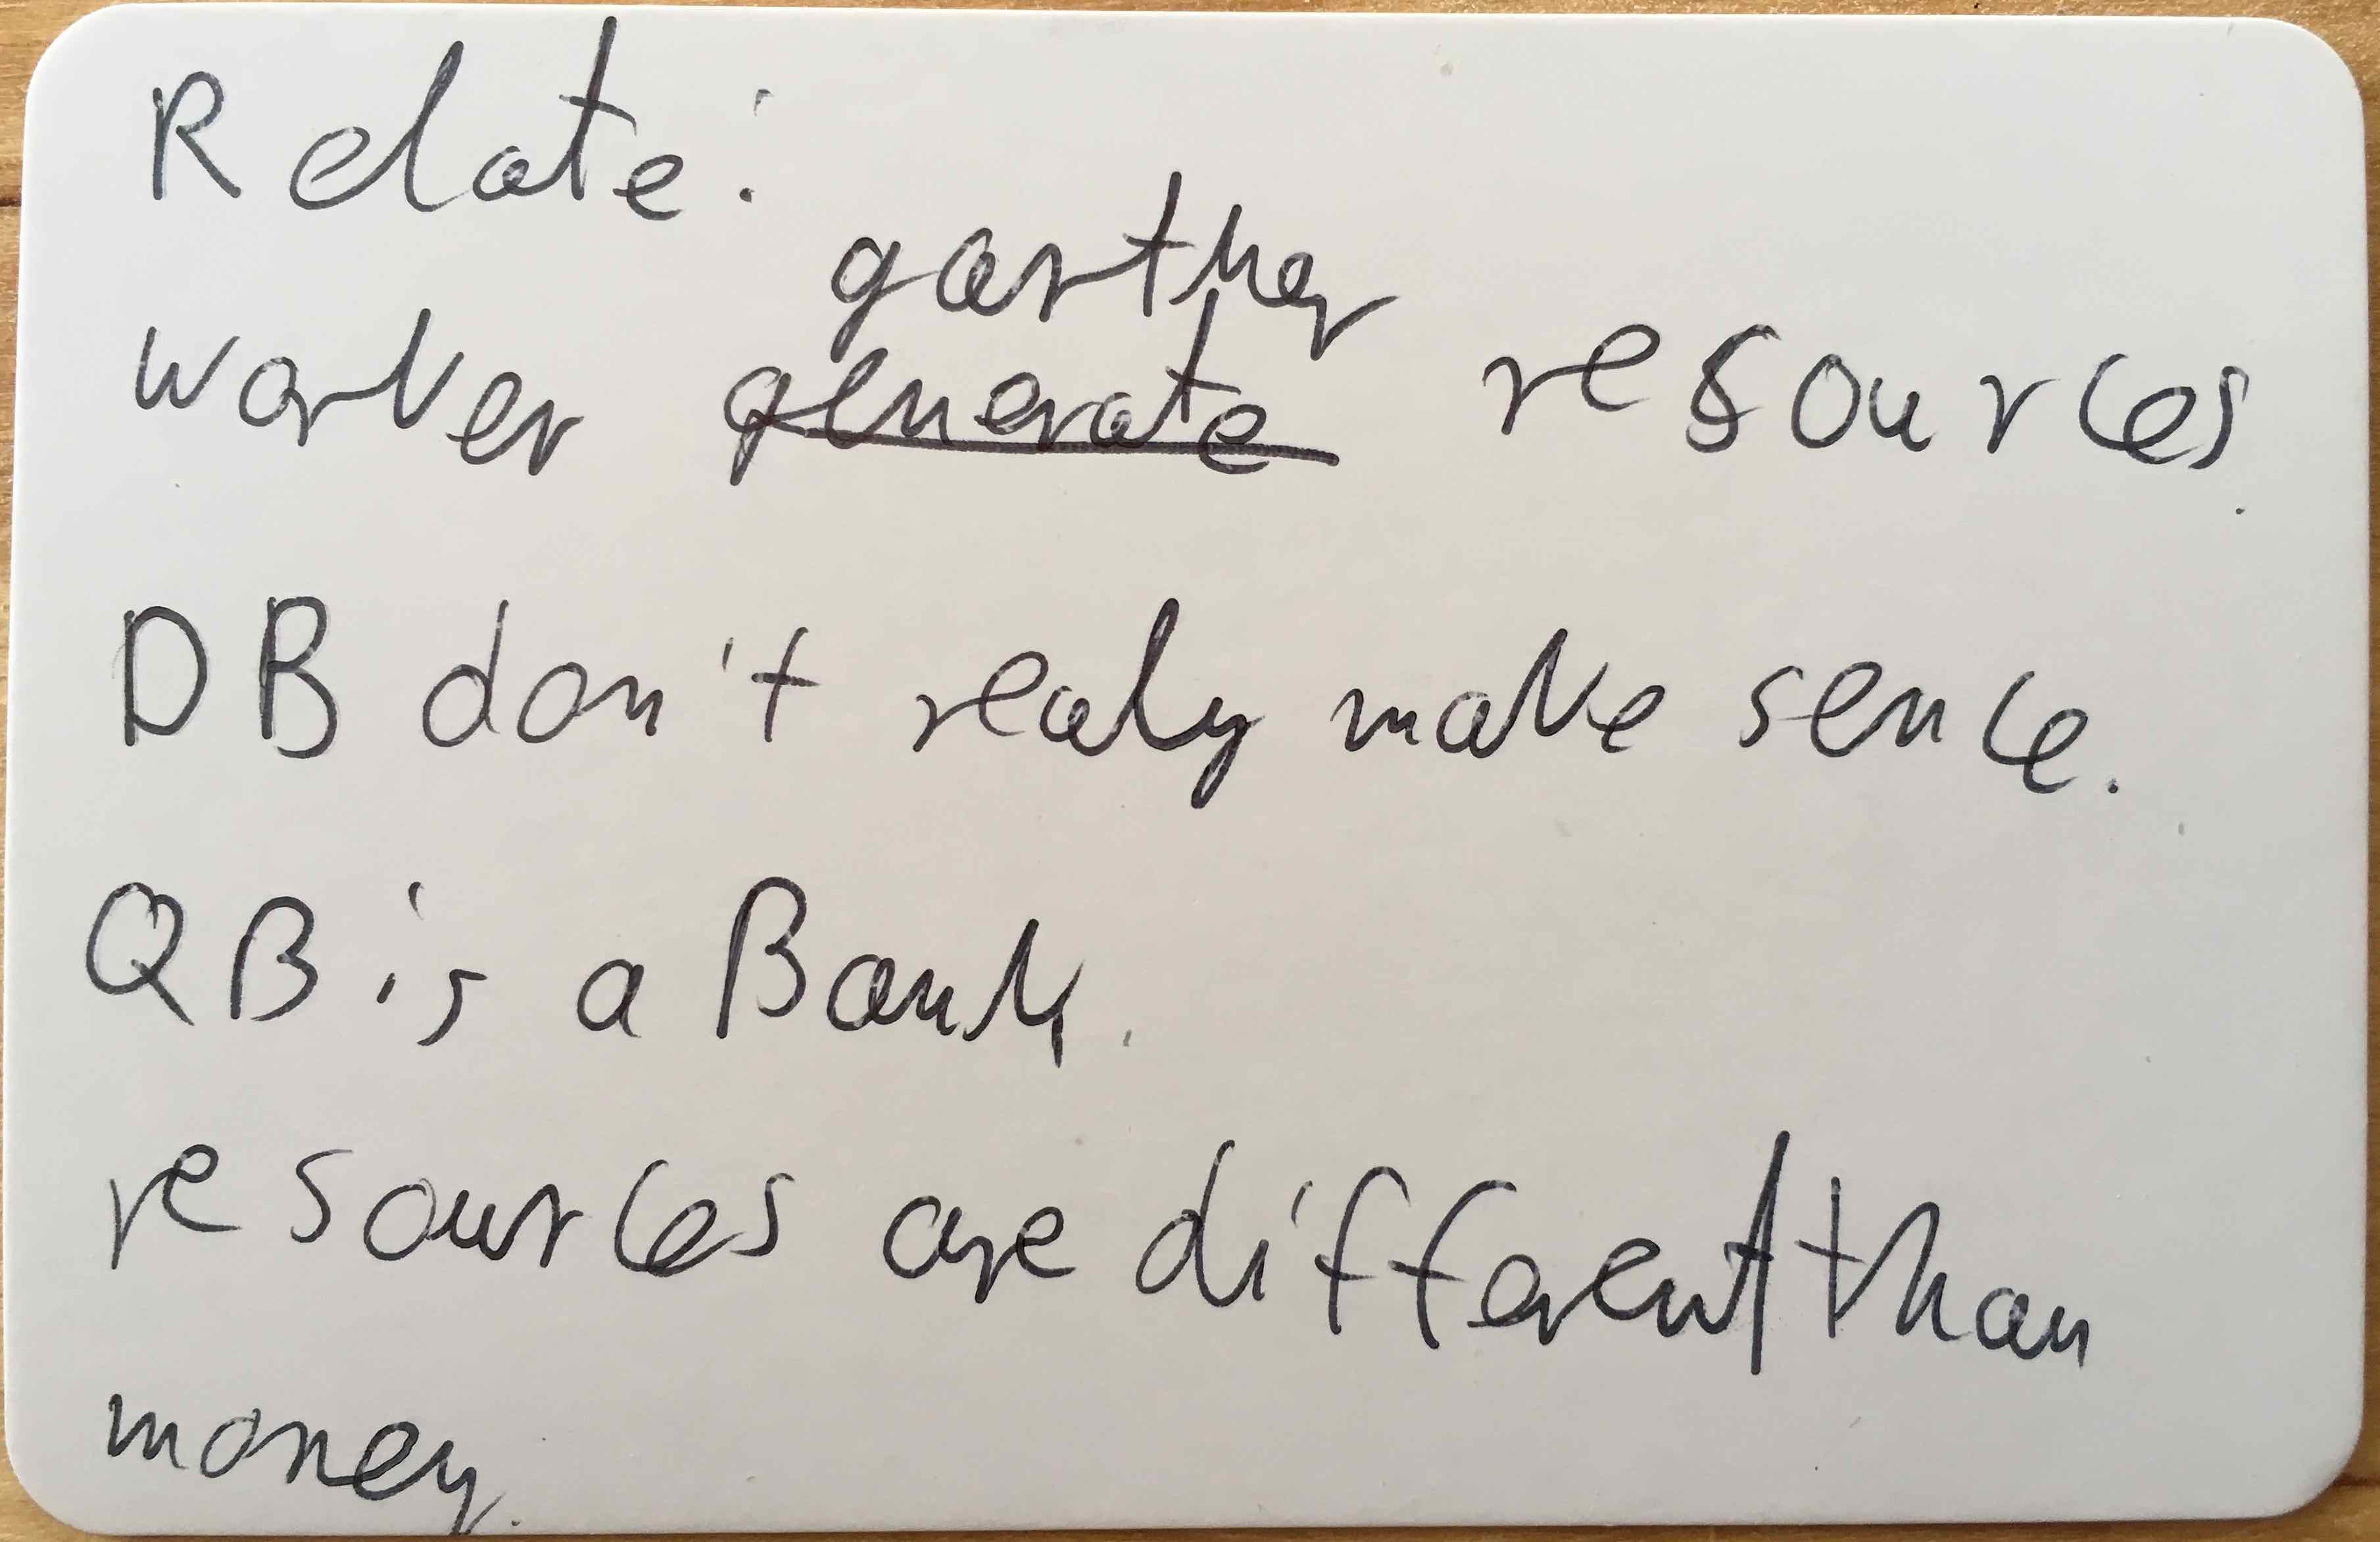 Relate:
garther
worker generate resources.
DB don't realy make sence.
QB is a Bank.
resources are different than
money.